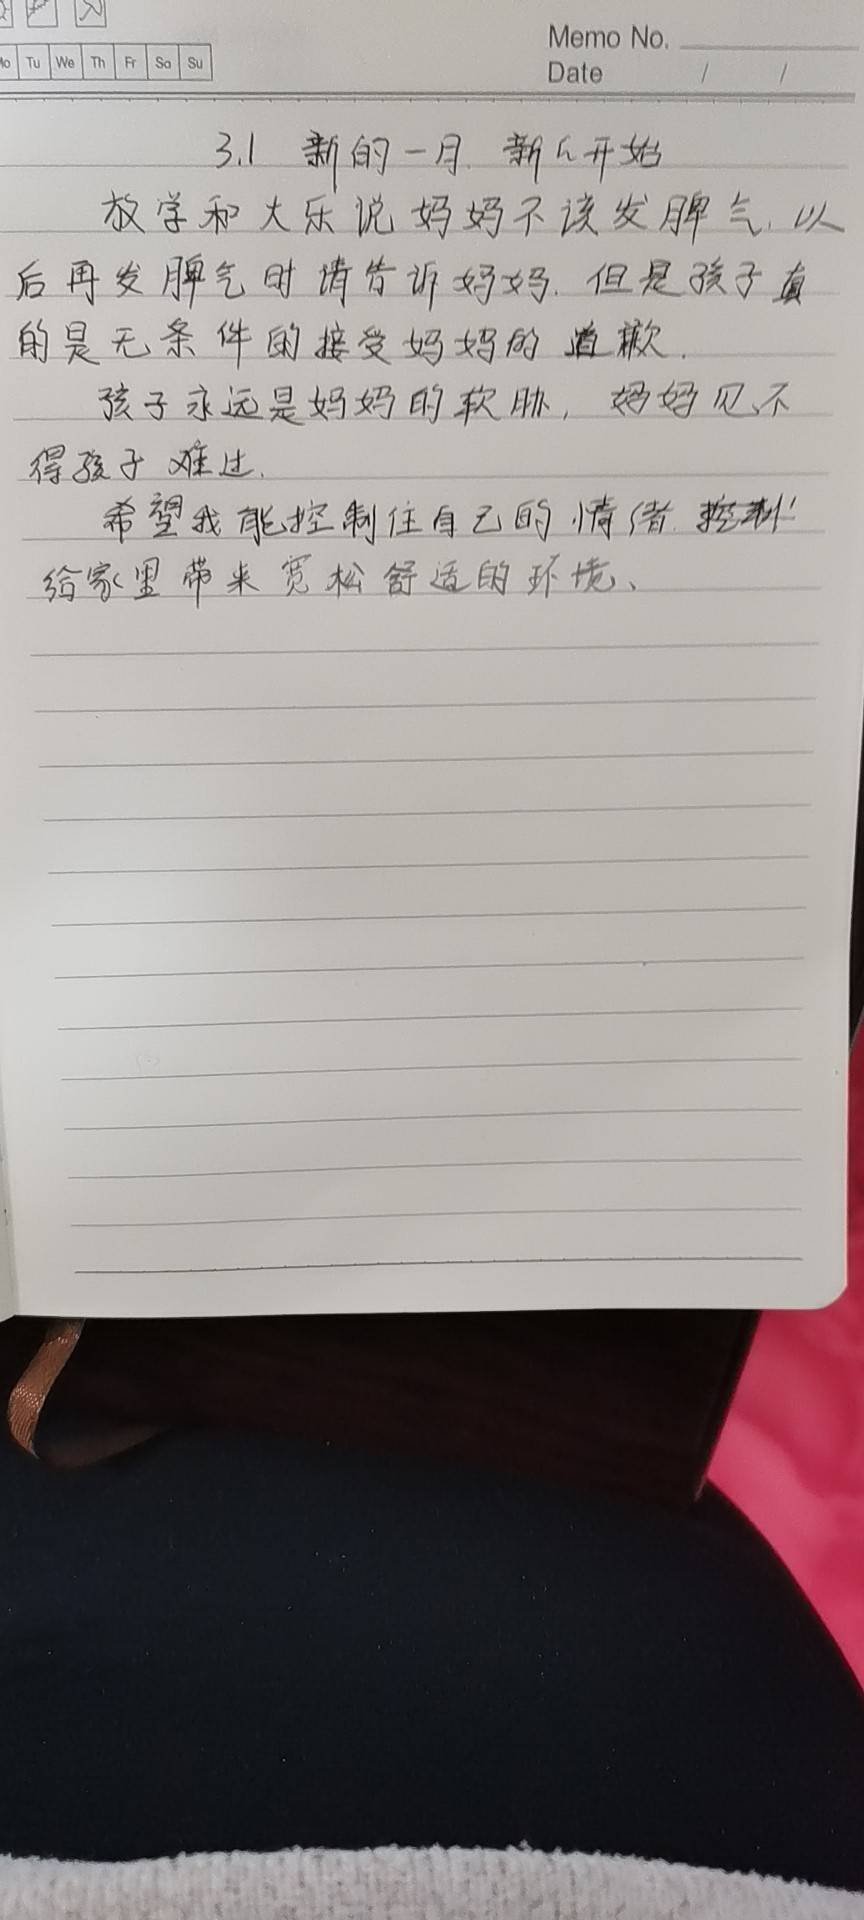 Memo No.
Mo Tu We Th Fr Sa Su
Date / /
3.1 新的一月. 新的开始
放学和大乐说妈妈不该发脾气. 以
后再发脾气时请告诉妈妈. 但是孩子真
的是无条件的接受妈妈的道歉.
孩子永远是妈妈的软肋, 妈妈见不
得孩子难过.
希望我能控制住自己的情绪.
给家里带来宽松舒适的环境、